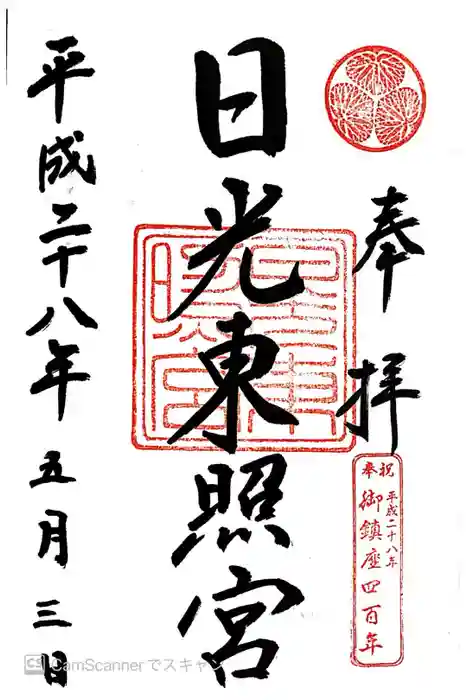 奉拝
奉祝
平成二十八年
御鎮座四百年
日光東照宮
平成二十八年五月三日
CS CamScannerでスキャン